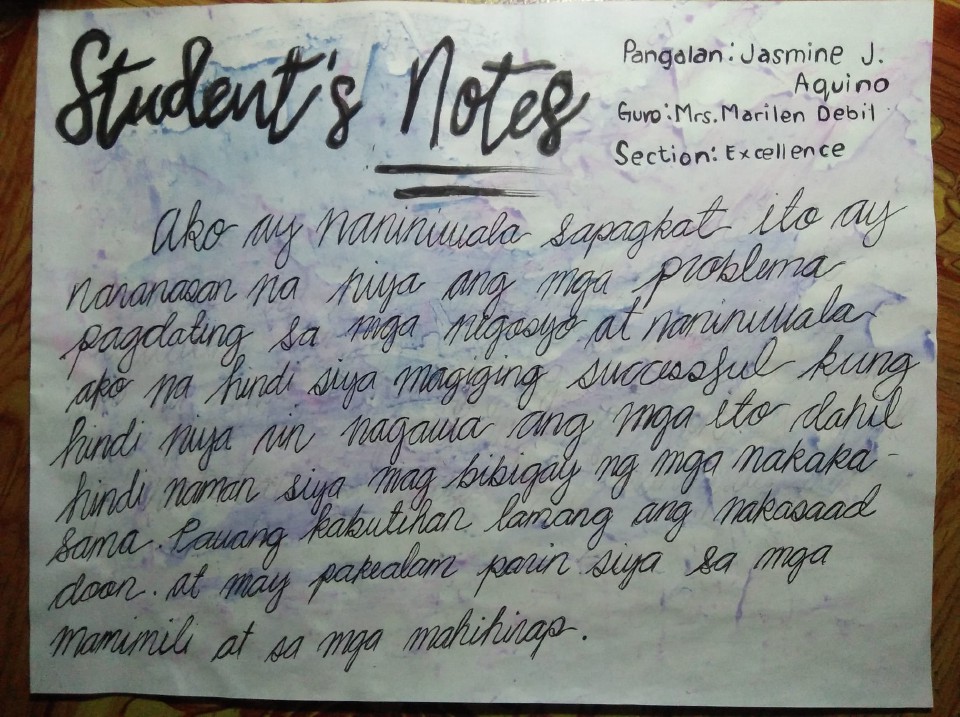 Student's Notes
Pangalan: Jasmine J.
Aquino
Guro: Mrs. Marilen Debil
Section: Excellence
Ako ay naniniwala sapagkat ito ay
naranasan na niya ang mga problema
pagdating sa mga nigosyo at naniniwala
ako na hindi siya magiging successful kung
hindi niya rin nagawa ang mga ito dahil
hindi naman siya mag bibigay ng mga nakaka-
sama. Pawang kabutihan lamang ang nakasaad
doon. at may pakealam parin siya sa mga
mamimili at sa mga mahihirap.